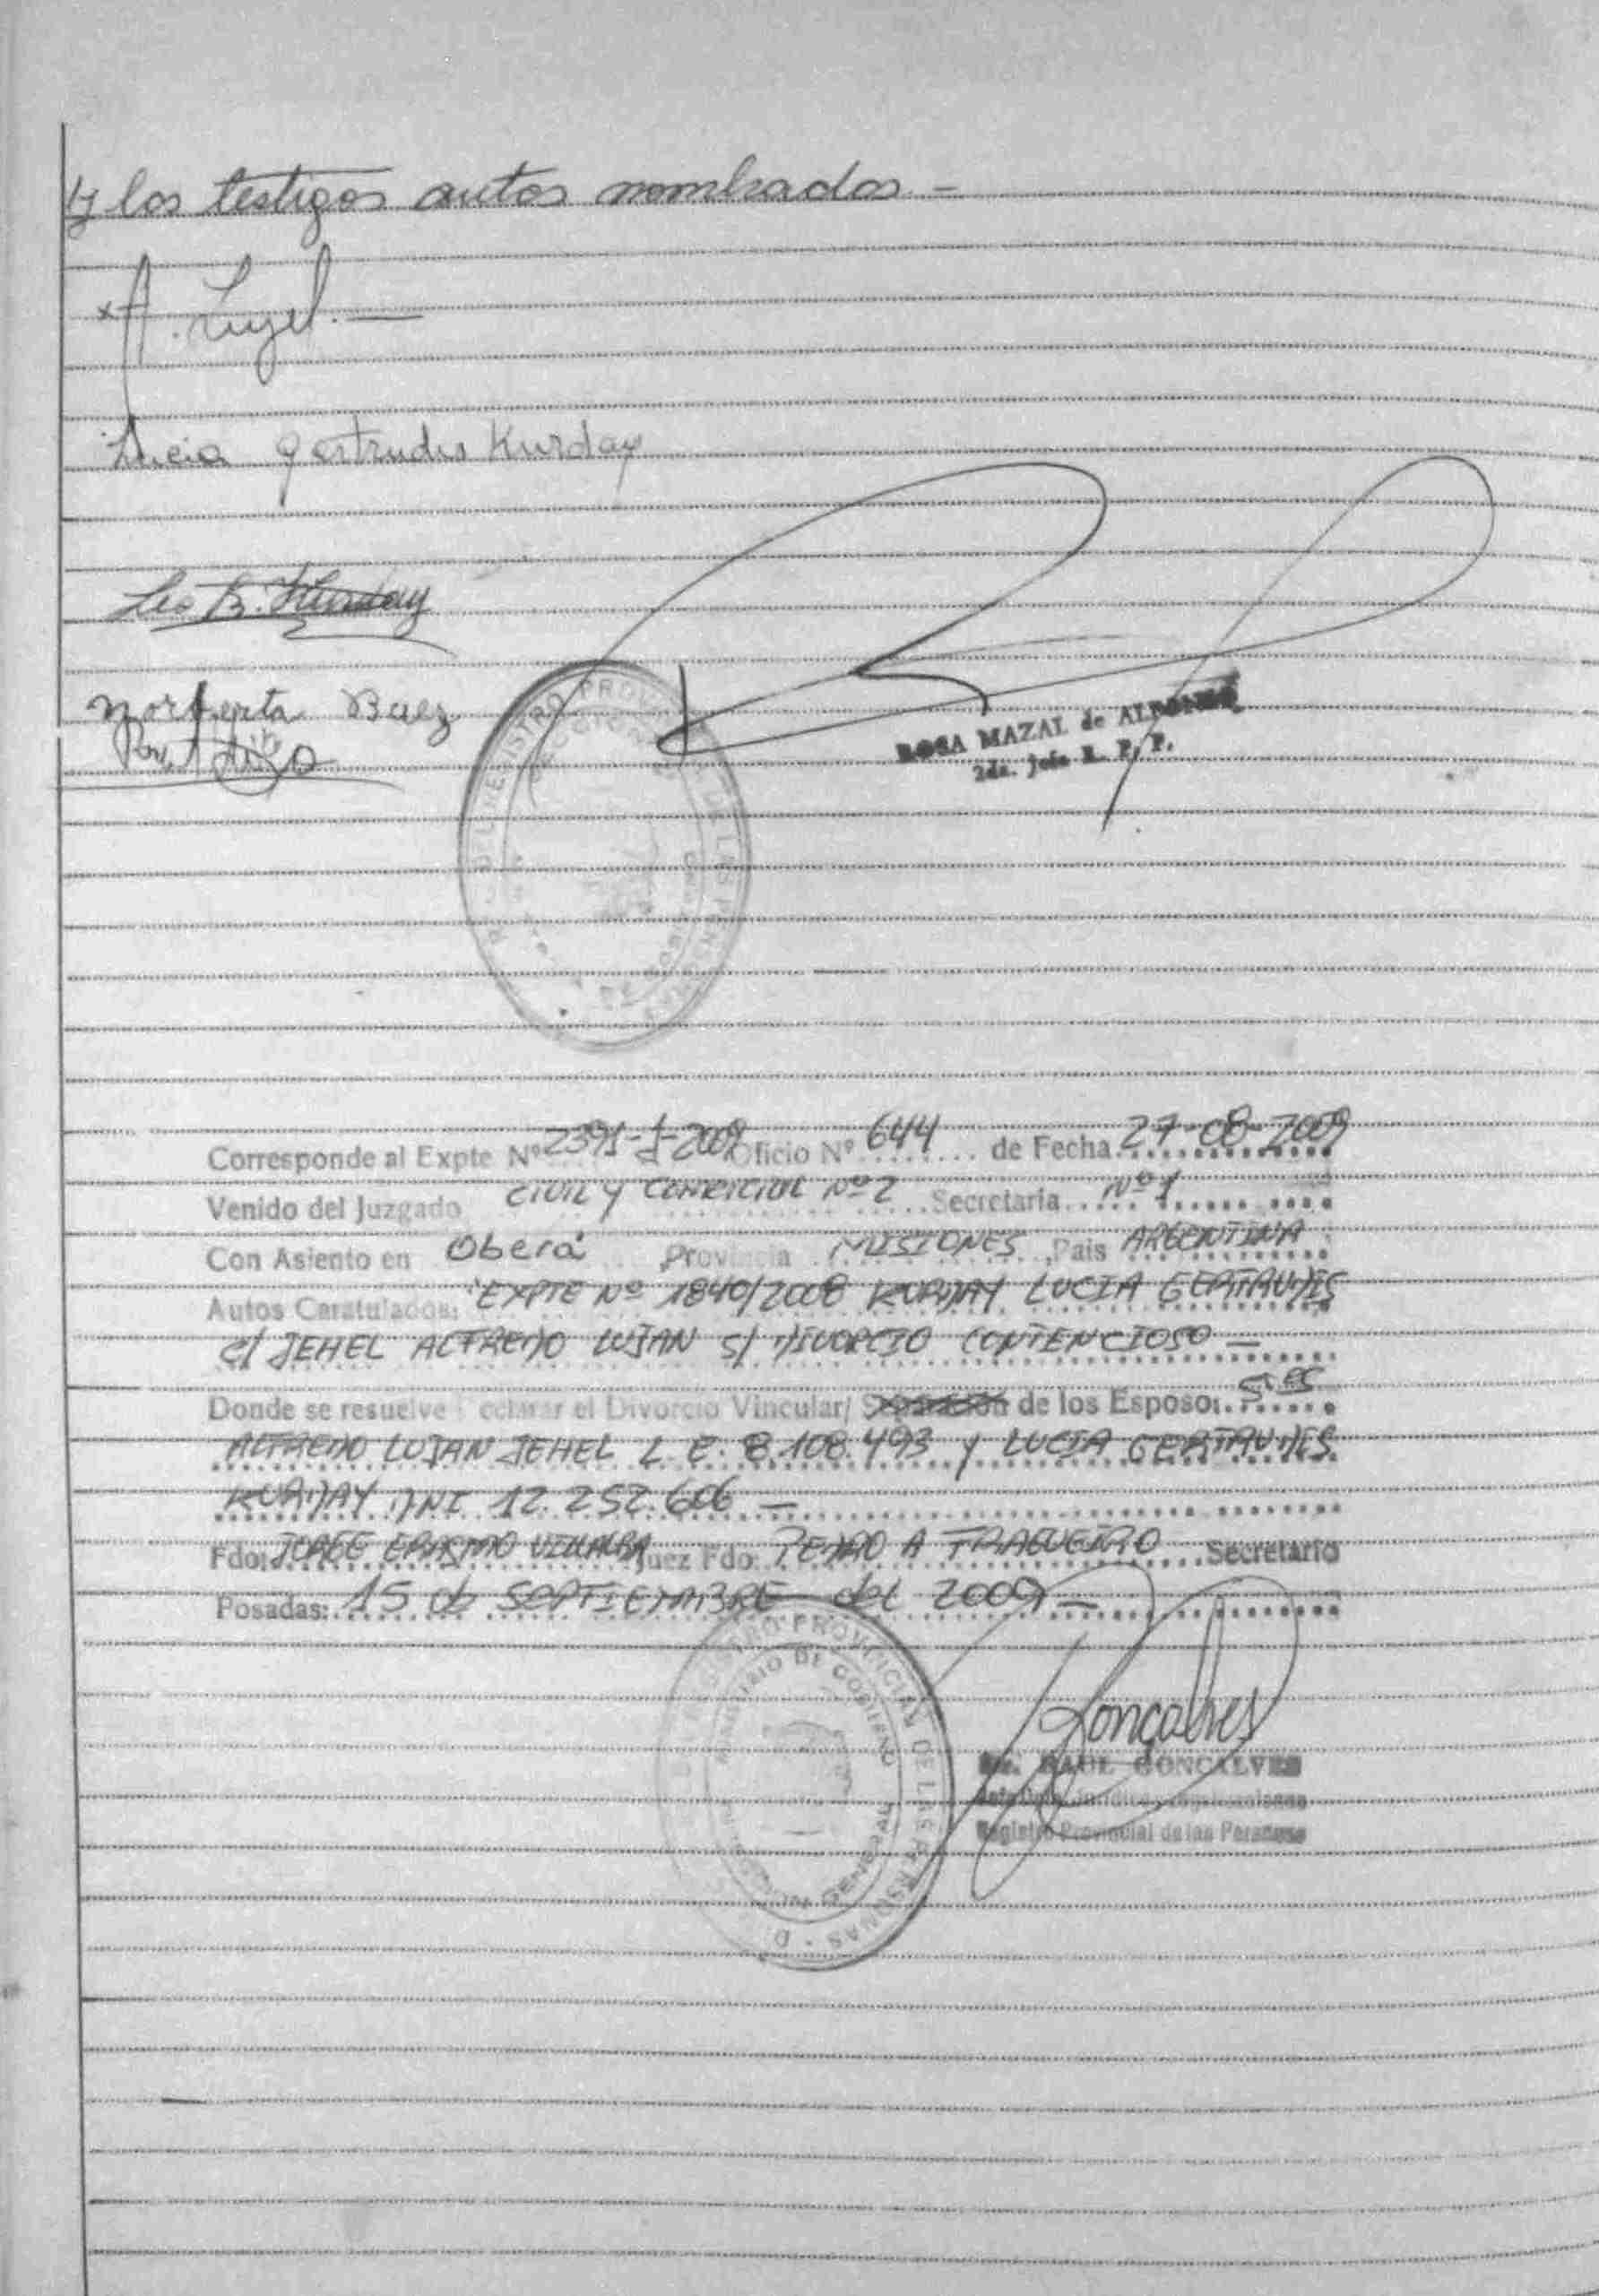 y los testigos antes nombrados —
Lucia Gertrudis Kurday
Leo B. Kurday
Norberta Baez
ROSA MAZAL de
2da. Jefe R. P. P.
Corresponde al Expte Nº 2391-J-2009 Oficio Nº 644 de Fecha 27-08-2009
Venido del Juzgado CIVIL y COMERCIAL Nº 2 Secretaría Nº 1
Con Asiento en Oberá Provincia MISIONES, País ARGENTINA
Autos Caratulados: "EXPTE Nº 1840/2008 KURDAY LUCIA GERTRUDIS
C/ JEHEL ALFREDO LUJAN S/ DIVORCIO CONTENCIOSO —
Donde se resuelve Declarar el Divorcio Vincular/ Separación de los Esposos
ALFREDO LUJAN JEHEL L. E. 8.108.493 y LUCIA GERTRUDIS
KURDAY DNI 12.252.606 —
Fdo: JORGE ERASMO VILLALBA Juez Fdo: PEDRO A FRAGUEIRO Secretario
Posadas: 15 de SEPTIEMBRE del 2009 —
REGISTRO PROVINCIAL DE LAS PERSONAS
MINISTERIO DE GOBIERNO
Gonçalves
RAUL GONCALVES
Registro Provincial de las Personas